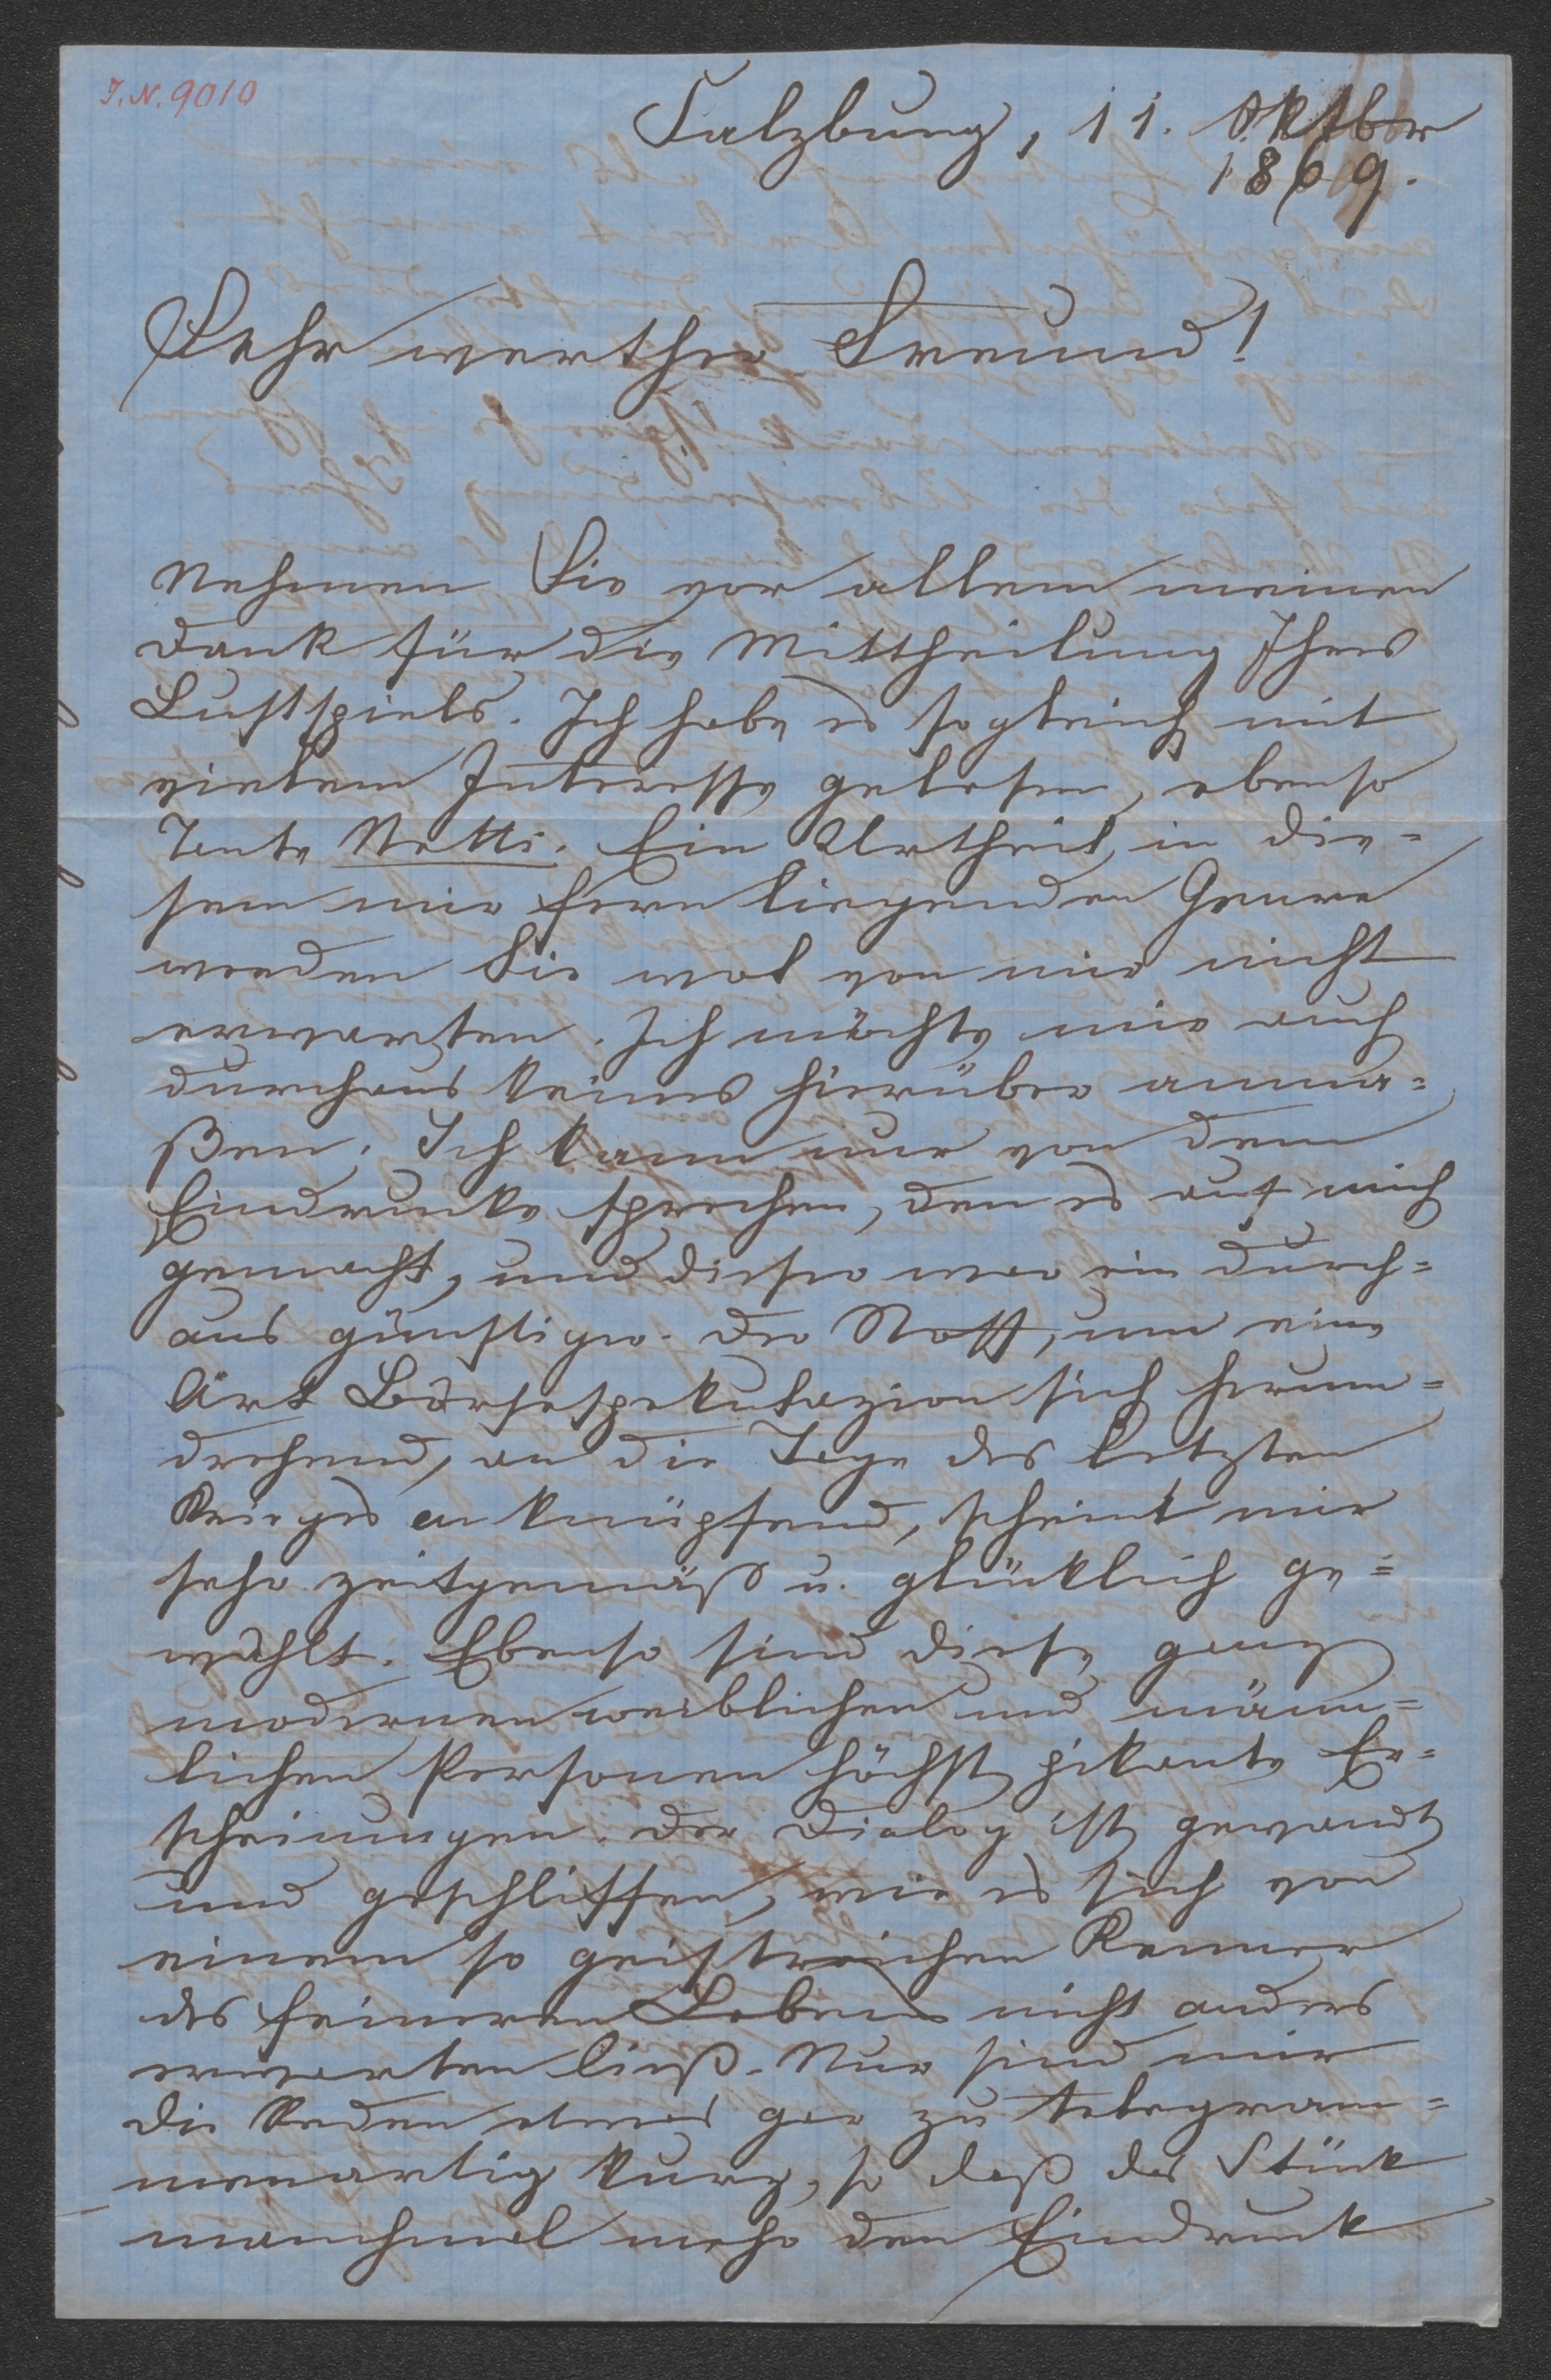 J.N. 9010
Salzburg, 11. Oktber
1869.
Sehr werther Freund!
Nehmen Sie vor allem meinen
Dank für die Mittheilung Ihres
Lustspiels. Ich habe es sogleich mit
vielem Interesse gelesen, ebenso
Tante Netti. Ein Urtheil in die=
sem mir fern liegenden Genre
werden Sie wol von mir nicht
erwarten. Ich möchte mir auch
durchaus keines hierüber anma=
ßen. Ich kann nur von dem
Eindrucke sprechen, den es auf mich
gemacht, und dieser war ein durch=
aus günstiger. Der Stoff, um eine
Art Börsespekulazion sich herum=
drehend, an die Tage des letzten
Krieges anknüpfend, scheint mir
sehr zeitgemäß u. glücklich ge=
wählt. Ebenso sind diese ganz
modernen weiblichen und männ=
lichen Personen höchst pikante Er=
scheinungen. Der Dialog ist gewandt
und geschliffen, wie es sich von
einem so geistreichen Kenner
des feineren Lebens nicht anders
erwarten ließ. Nur sind mir
die Reden etwas gar zu telegram=
menartig kurz, so daß das Stück
manchmal mehr den Eindruck